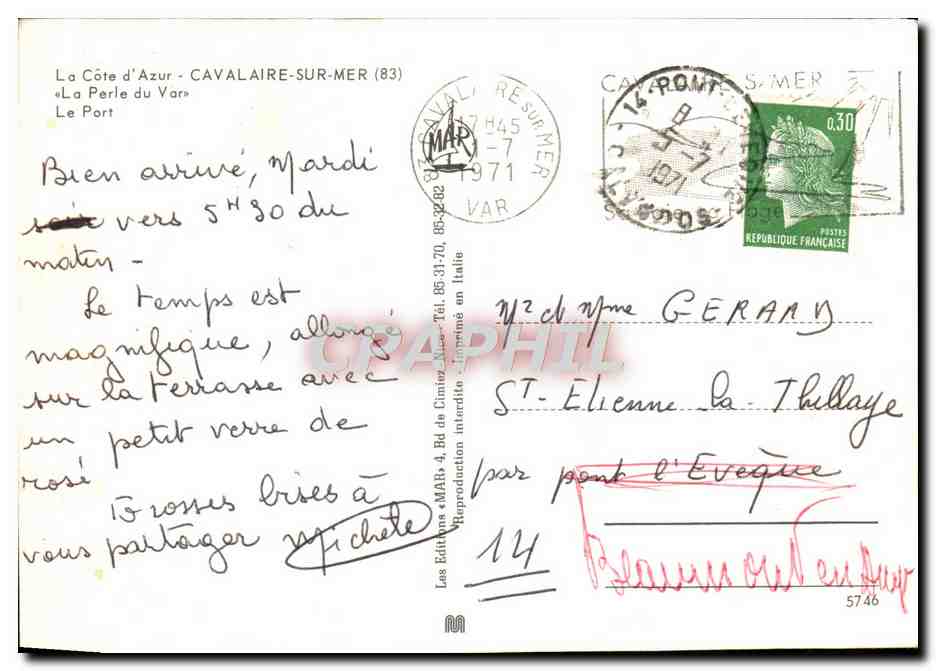 La Côte d'Azur - CAVALAIRE-SUR-MER (83)
«La Perle du Var»
Le Port
Bien arrivé, Mardi
vers 5H30 du
matin -
Le temps est
magnifique, allongé
sur la terrasse avec
un petit verre de
rosé
Grosses bises à
vous partager Michèle
Les Editions «MAR» 4, Bd de Cimiez, Nice - Tél. 85-31-70, 85-32-82
Reproduction interdite - Imprimé en Italie
MAR
83 CAVALAIRE SUR MER
17H45
-7
1971
VAR
CAVALAIRE S/MER
14 - PONT-L'EVEQUE
8
-7
1971
CALVADOS
Plage
0,30
POSTES
REPUBLIQUE FRANÇAISE
CPAPHIL
Mr et Mme GERARD
St-Etienne la Thillaye
par pont l'Evêque
14
Beaumont en Auge
5746
M